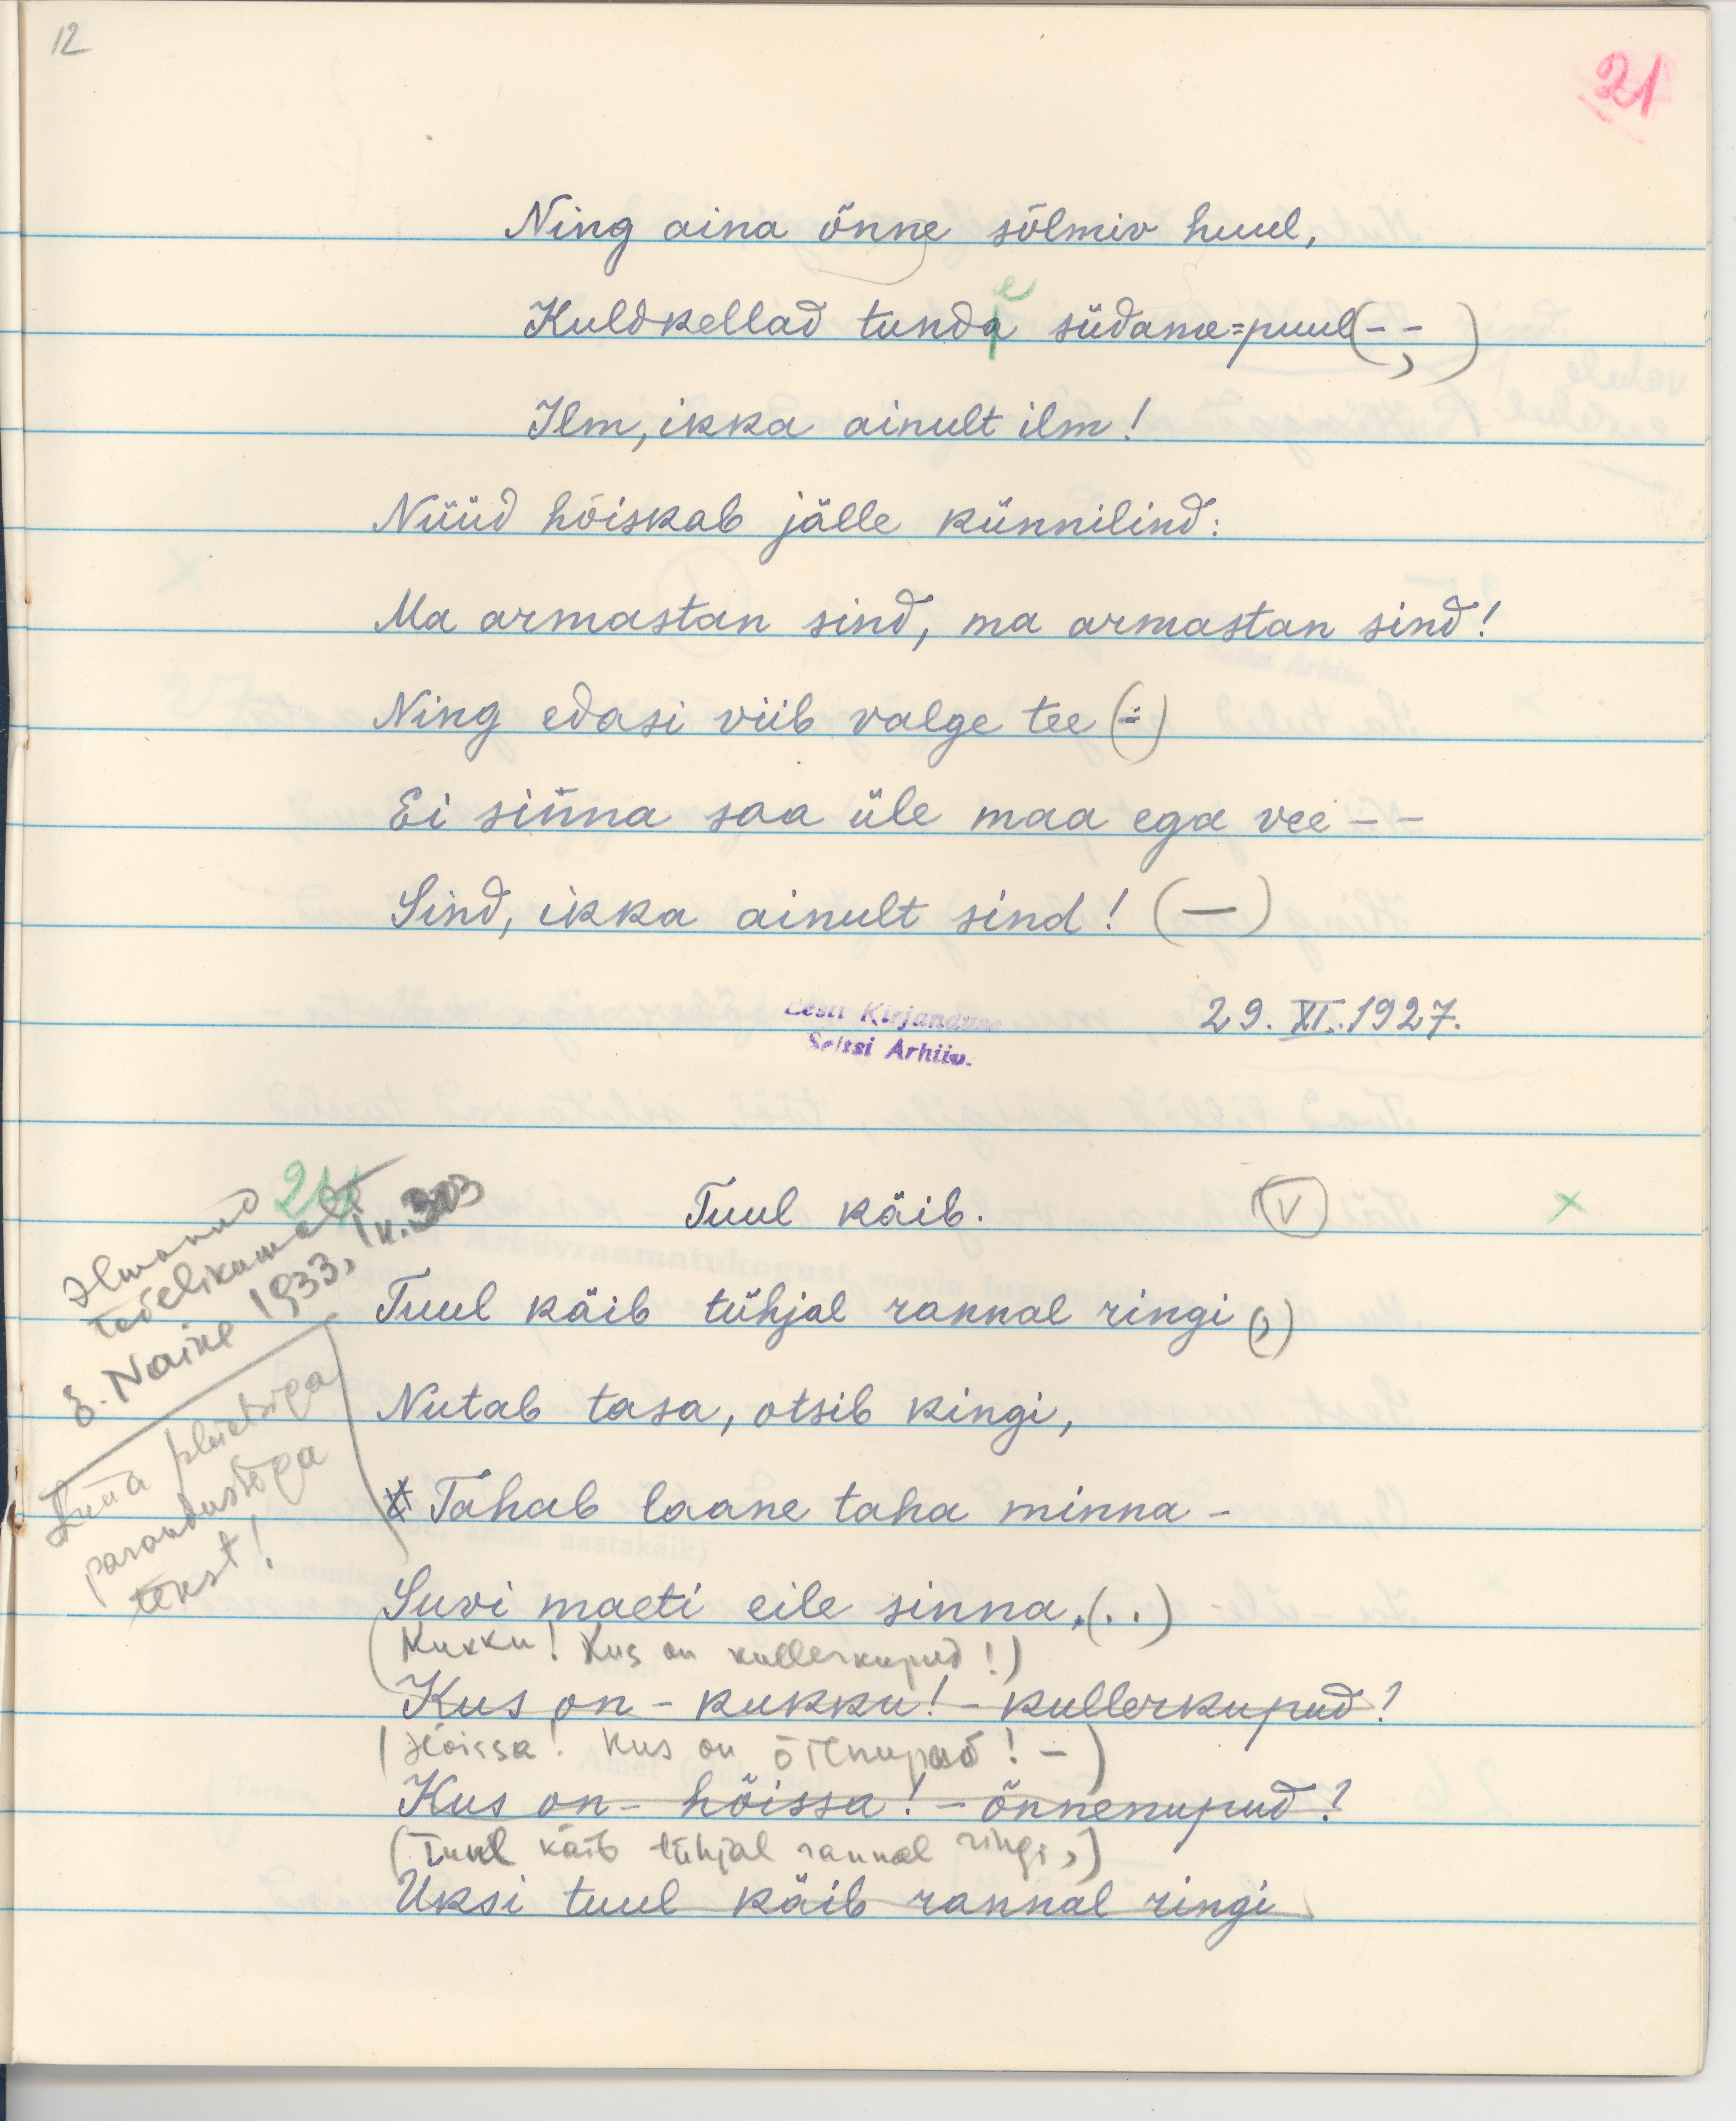 12
21
Ning aina õnne sõlmiv huul,
e
Kuldkellad tunda südame=puul(--,)
Ilm, ikka ainult ilm!
Nüüd hõiskab jälle künnilind:
Ma armastan sind, ma armastan sind!
Ning edasi viib valge tee (-)
Ei sinna saa üle maa ega vee --
Sind, ikka ainult sind! (—)
29. XI. 1927.
Eesti Kirjanduse
Seltsi Arhiiv.
Tuul käib.
V
x
Ilmunud
täielikumalt
E. Naine 1933, lk. 303
pliiatsiga
parandustega
tekst!
Tuul käib tühjal rannal ringi (,)
Nutab tasa, otsib kingi,
Tahab laane taha minna -
Suvi maeti eile sinna.(..)
(Kukku! Kus on kullerkupud!)
Kus on - kukku! - kullerkupud?
(Hõissa! Kus on õienupud! -)
Kus on - hõissa! - õnnenupud?
(Tuul käib tühjal rannal ringi,)
Üksi tuul käib rannal ringi